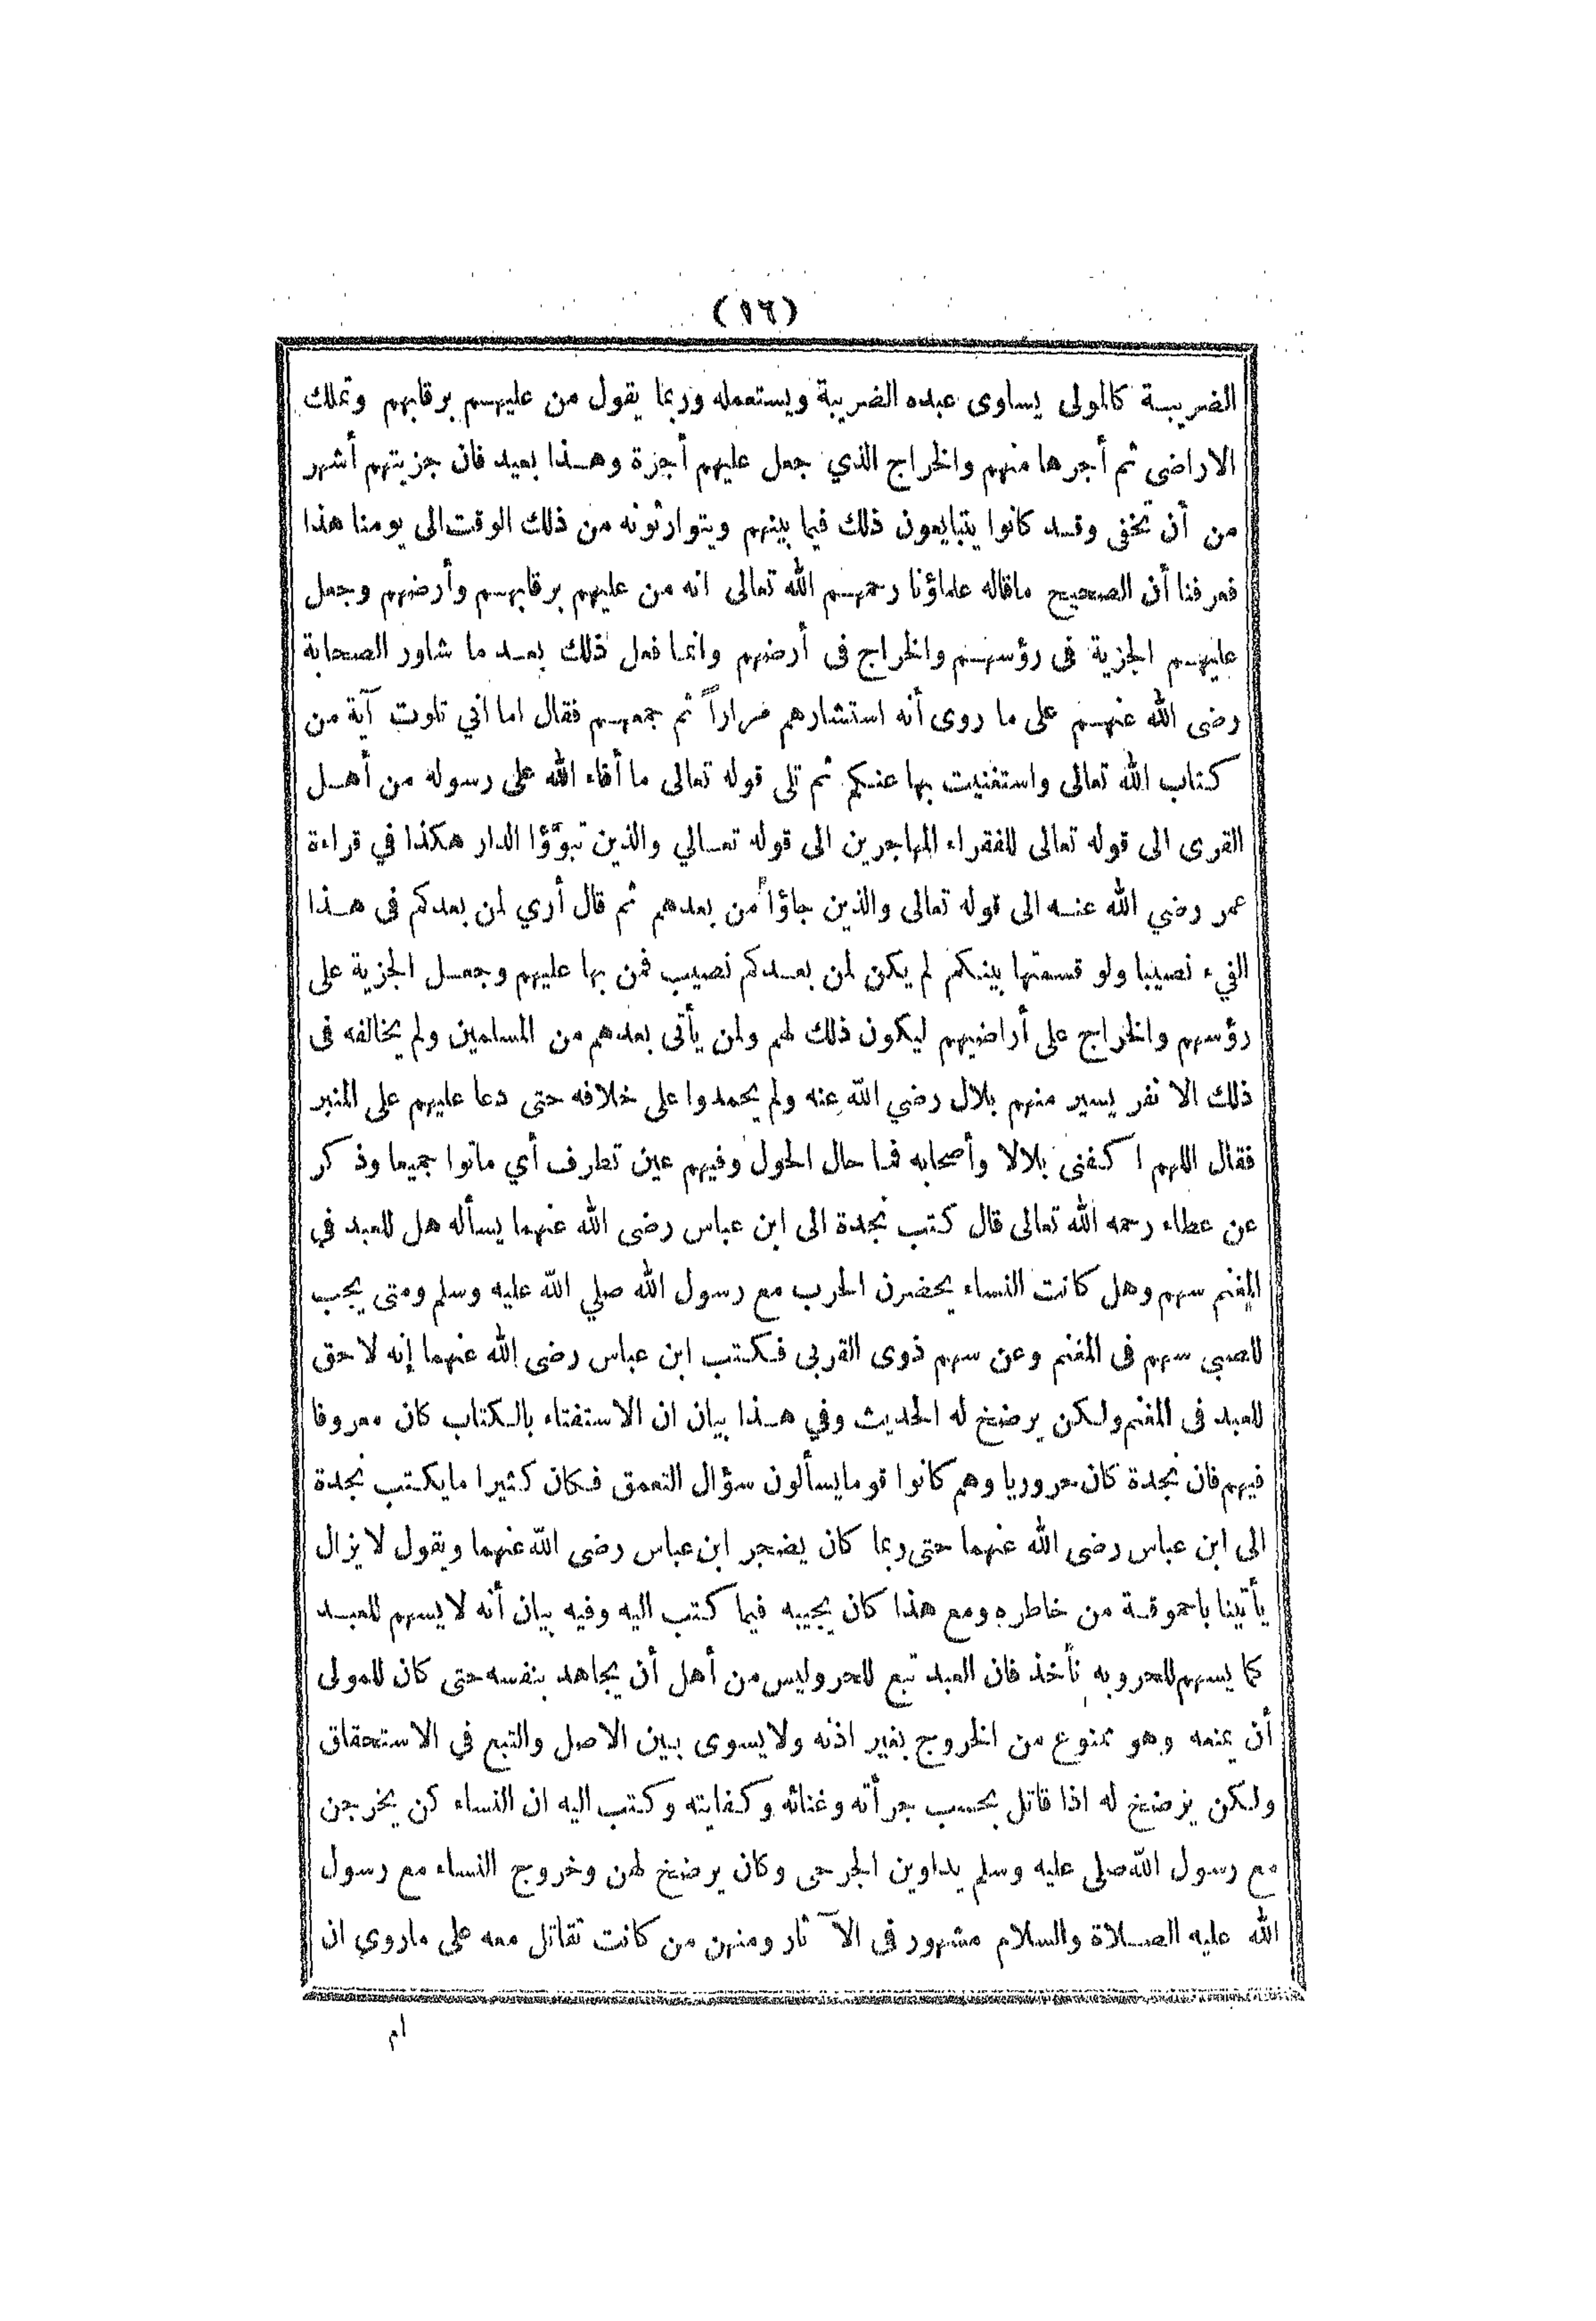 (١٦)
الضريبة كالمولى يساوى عبده الضريبة ويستعمله وربما يقول من عليهم برقابهم وتملك
الاراضى ثم أجرها منهم والخراج الذي جعل عليهم أجرة وهذا بعيد فان جزيتهم أشهر
من أن تخفى وقد كانوا يتبايعون ذلك فيما بينهم ويتوارثونه من ذلك الوقت الى يومنا هذا
فعرفنا أن الصحيح ماقاله علماؤنا رحمهم الله تعالى انه من عليهم برقابهم وأرضهم وجعل
عليهم الجزية فى رؤسهم والخراج فى أرضهم وانما فعل ذلك بعد ما شاور الصحابة
رضى الله عنهم على ما روى أنه استشارهم مراراً ثم جمعهم فقال اما اني تلوت آية من
كتاب الله تعالى واستغنيت بها عنكم ثم تلى قوله تعالى ما أفاء الله على رسوله من أهل
القرى الى قوله تعالى للفقراء المهاجرين الى قوله تعالي والذين تبوّؤا الدار هكذا في قراءة
عمر رضي الله عنه الى قوله تعالى والذين جاؤا من بعدهم ثم قال أري لمن بعدكم فى هذا
الفيء نصيبا ولو قسمتها بينكم لم يكن لمن بعدكم نصيب فمن بها عليهم وجعل الجزية على
رؤسهم والخراج على أراضيهم ليكون ذلك لهم ولمن يأتى بعدهم من المسلمين ولم يخالفه فى
ذلك الا نفر يسير منهم بلال رضي الله عنه ولم يحمدوا على خلافه حتى دعا عليهم على المنبر
فقال اللهم اكفنى بلالا وأصحابه فما حال الحول وفيهم عين تطرف أي ماتوا جميعا وذكر
عن عطاء رحمه الله تعالى قال كتب نجدة الى ابن عباس رضى الله عنهما يسأله هل للعبد في
المغنم سهم وهل كانت النساء يحضرن الحرب مع رسول الله صلي الله عليه وسلم ومتى يجب
للصبي سهم فى المغنم وعن سهم ذوى القربى فكتب ابن عباس رضى الله عنهما إنه لا حق
للعبد فى المغنم ولكن يرضخ له الحديث وفي هذا بيان ان الاستفتاء بالكتاب كان معروفا
فيهم فان نجدة كان حروريا وهم كانوا قوما يسألون سؤال التعمق فكان كثيرا ما يكتب نجدة
الى ابن عباس رضى الله عنهما حتى ربما كان يضجر ابن عباس رضى الله عنهما ويقول لا يزال
يأتينا باحموقة من خاطره ومع هذا كان يجيبه فيما كتب اليه وفيه بيان أنه لا يسهم للعبد
كما يسهم للحر وبه نأخذ فان العبد تبع للحر وليس من أهل أن يجاهد بنفسه حتى كان للمولى
أن يمنعه وهو ممنوع من الخروج بغير اذنه ولا يسوى بين الاصل والتبع في الاستحقاق
ولكن يرضخ له اذا قاتل بحسب جرأته وغنائه وكفايته وكتب اليه ان النساء كن يخرجن
مع رسول الله صلى عليه وسلم يداوين الجرحى وكان يرضخ لهن وخروج النساء مع رسول
الله عليه الصلاة والسلام مشهور فى الآثار ومنهن من كانت تقاتل معه على ماروي ان
ام